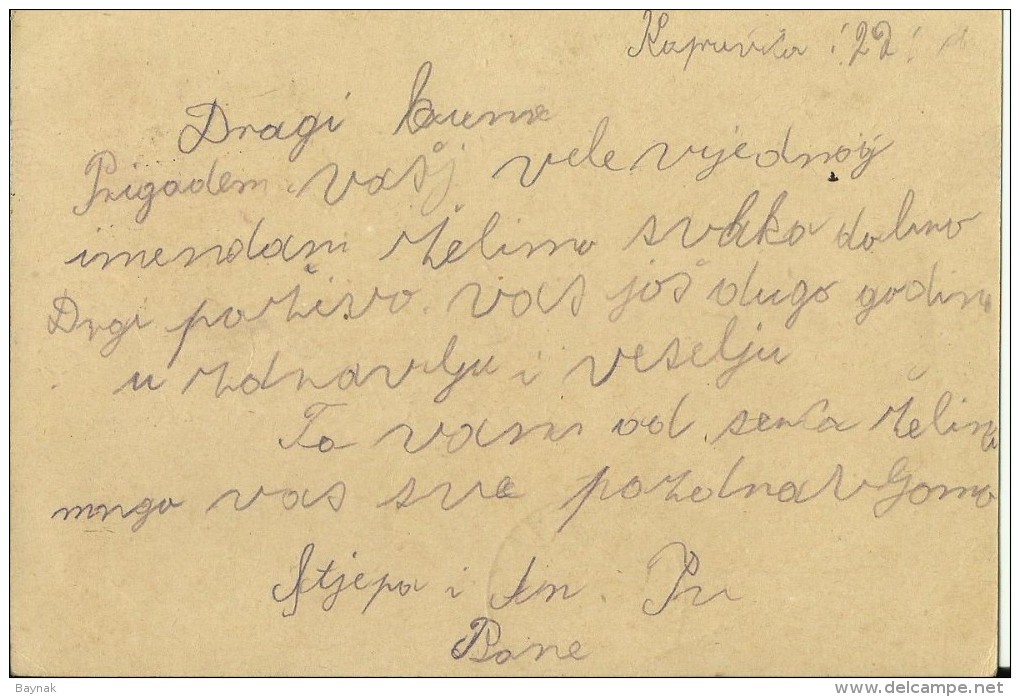 22
Dragi kume
Prigadem vašj velevrjednoj
imendani želimo svakko dobro
Drgi poživo vas još dugo godina
u zdravlju i veselju
To vam od serca želimo
mngo vas sve pozdravljomo
Stjepa i
Bane
Baynak
www.delcampe.net